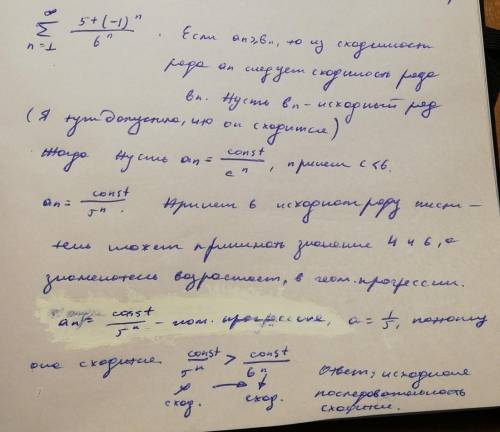 ∞
∑ (5+(-1)^n)/6^n . Если an ≥ bn, то из сходимости
n=1
ряда an следует сходимость ряда
bn. Пусть bn - исходный ряд
(Я тут допустила, что он сходится)
Тогда пусть an = const/c^n, причем c<6.
an = const/5^n. Причем в исходном ряду числи-
тель может принимать значение 4 и 6, а
знаменатель возрастает, в геом. прогрессии.
an = const/5^n - геом. прогрессия, a = 1/5, поэтому
она сходится. const/5^n > const/6^n Ответ: исходная
сход. → сход. последовательность
сходится.